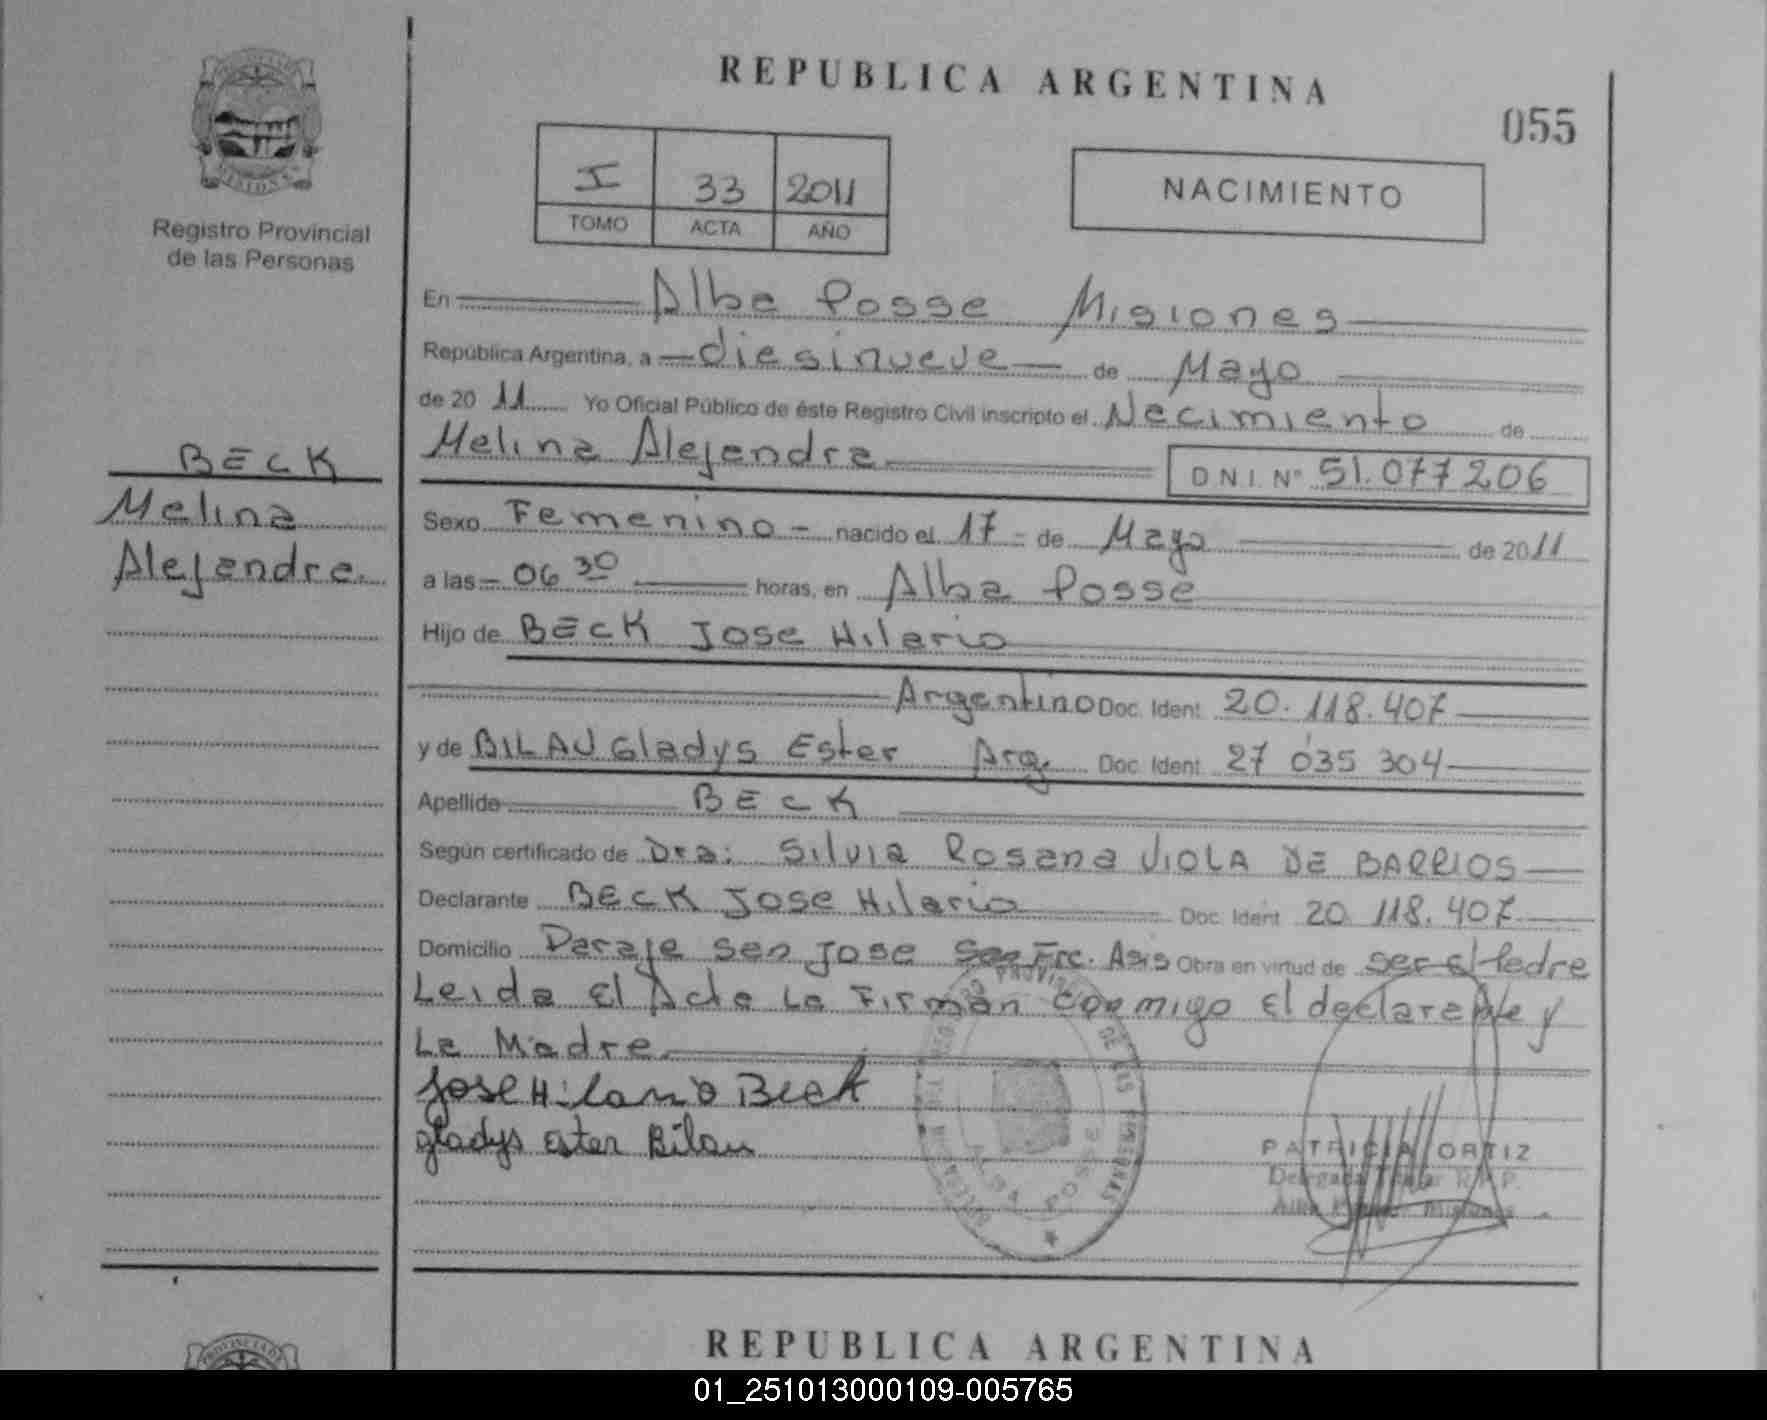 REPUBLICA ARGENTINA
055
I 33 2011
TOMO ACTA AÑO
NACIMIENTO
Registro Provincial
de las Personas
En Alba Posse Misiones
República Argentina, a diesinueve de Mayo
de 20 11 Yo Oficial Público de éste Registro Civil inscripto el Nacimiento de
Melina Alejandra D.N.I. Nº 51.077206
BECK
Melina
Alejandra.
Sexo Femenino - nacido el 17 - de Mayo de 2011
a las - 06 30 horas, en Alba Posse
Hijo de BECK Jose Hilario
Argentino Doc. Ident. 20.118.407
y de BILAU Gladys Ester Arg. Doc. Ident. 27 035 304
Apellido BECK
Según certificado de Dra: Silvia Rosana VIOLA DE BARRIOS
Declarante BECK Jose Hilario Doc. Ident. 20 118.407
Domicilio Paraje San Jose San Frc. Asis Obra en virtud de ser el Padre
Leida El Acta La Firman Conmigo El declarante y
La Madre.
Jose Hilario Beck
gladys Ester Bilau
REGISTRO PROVINCIAL DE LAS PERSONAS
ALBA POSSE
PATRICIA ORTIZ
Delegada Titular R.P.P.
Alba Posse Misiones
PROVINCIA DE
REPUBLICA ARGENTINA
01_251013000109-005765